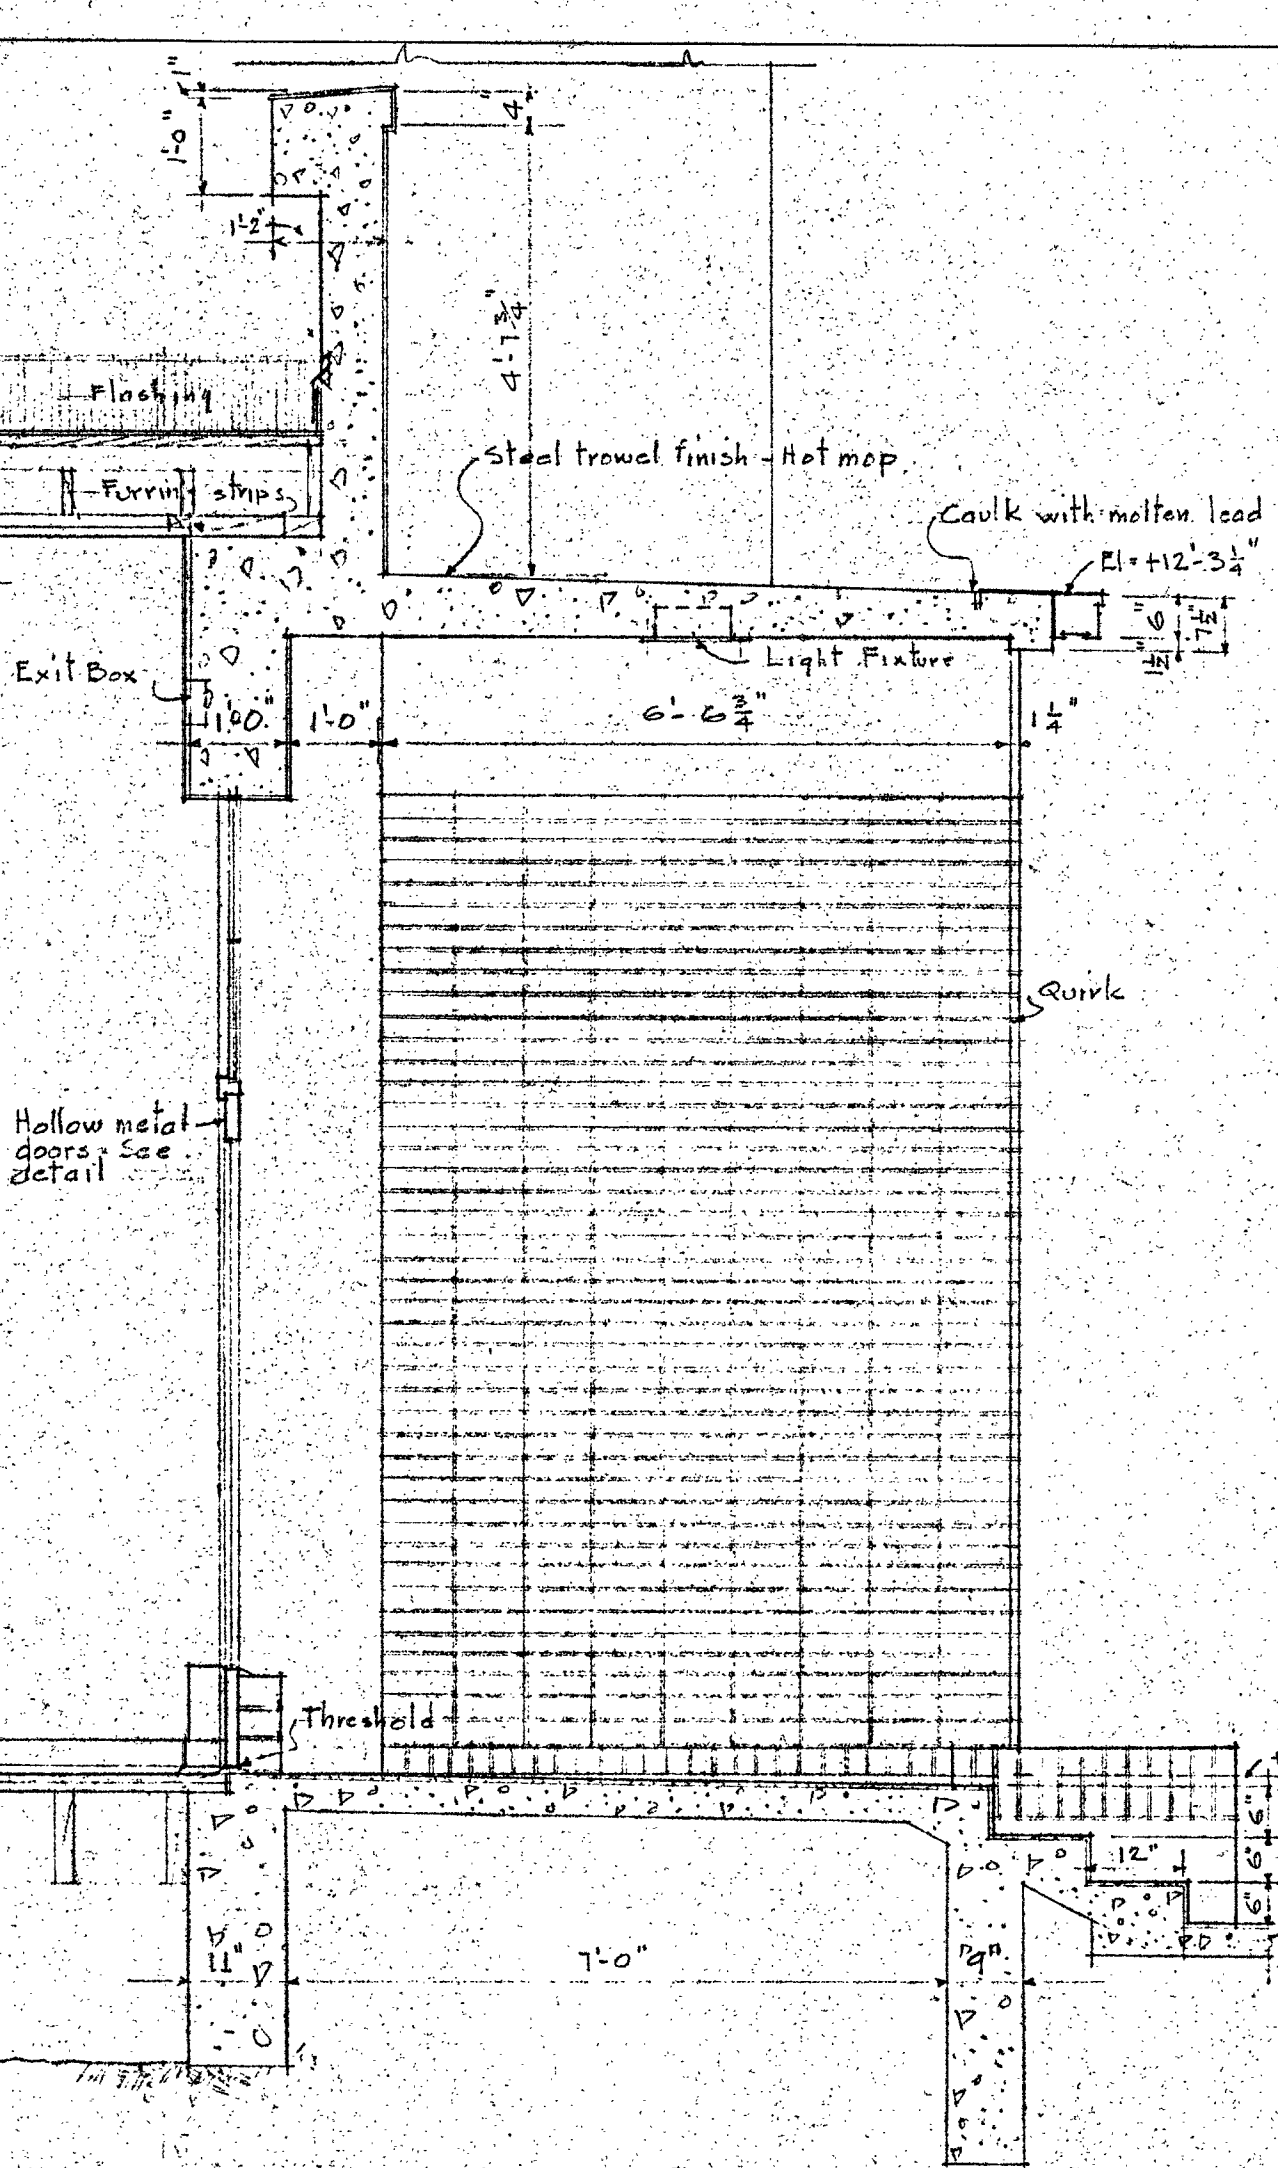 1"
1'-0"
4"
1'-2"
4'-7 3/4"
Flashing
Steel trowel finish - Hot mop
Furring strips
Caulk with molten lead
El = +12'-3 1/4"
6"
7 1/2"
1 1/2"
Light Fixture
Exit Box
1'-0"
1'-0"
6'-6 3/4"
1 1/4"
Quirk
Hollow metal
doors. See
detail
Threshold
6"
12"
6"
6"
11"
7'-0"
9"